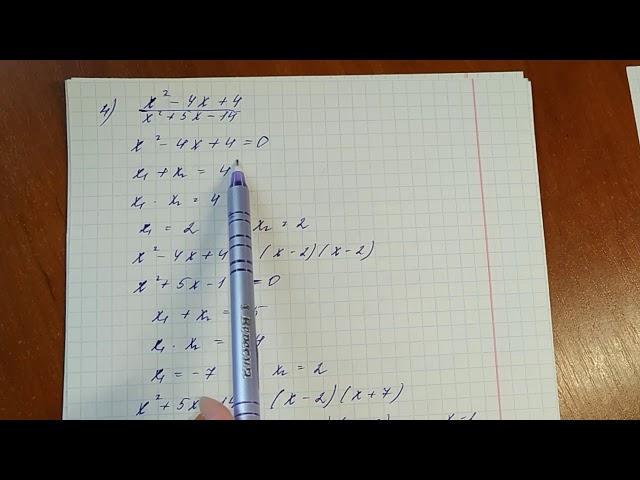 4) x² - 4x + 4
x² + 5x - 14
x² - 4x + 4 = 0
x₁ + x₂ = 4
x₁ · x₂ = 4
x₁ = 2 x₂ = 2
x² - 4x + 4 (x - 2)(x - 2)
x² + 5x - 1 = 0
x₁ + x₂ = 5
x₁ · x₂ = 4
x₁ = -7 x₂ = 2
x² + 5x - 14 (x - 2)(x + 7)